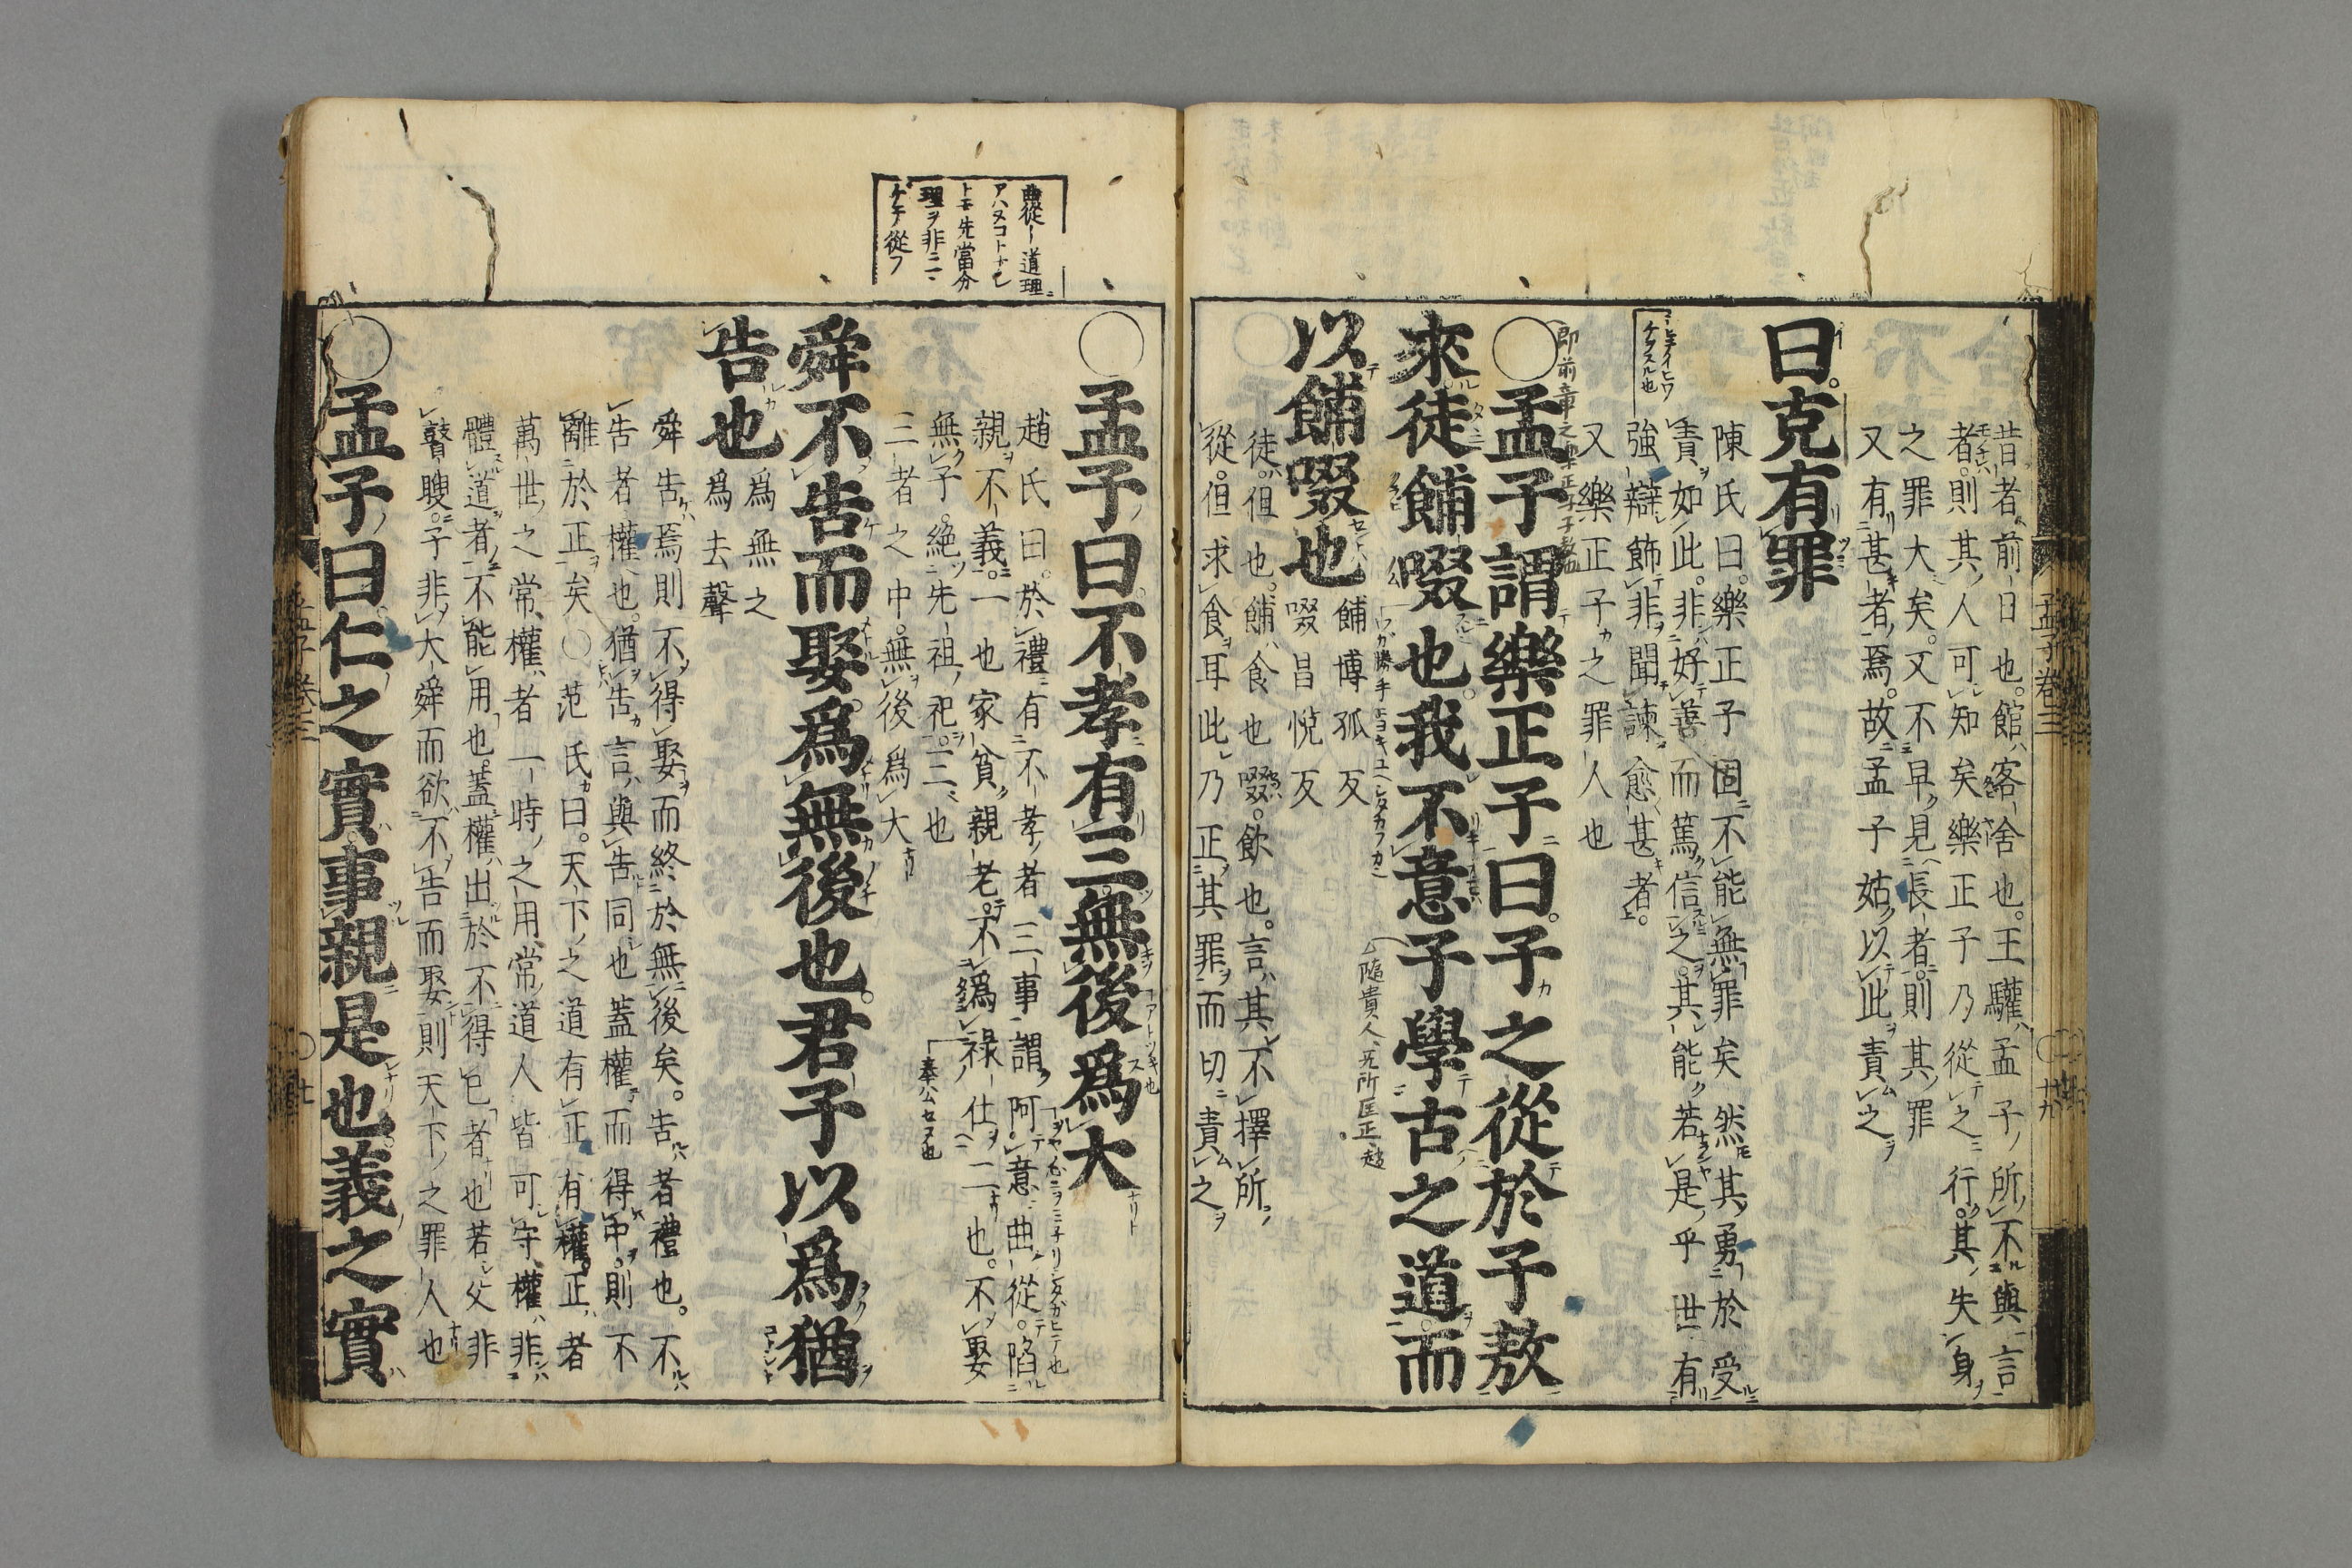 昔者前日也。館客舍也。王驩孟子所不與言
者。則其人可知矣樂正子乃從之行。其失身
之罪大矣。又不早見長者。則其罪
又有甚者焉。故孟子姑以此責之
曰。克有罪
陳氏曰。樂正子固不能無罪矣然其勇於受
責如此。非好善而篤信之。其能若是乎世有
強辯飾非聞諫愈甚者。
又樂正子之罪人也
○孟子謂樂正子曰。子之從於子敖
來徒餔啜也。我不意子學古之道。而
以餔啜也
餔博孤反
啜昌悅反
徒。但也。餔食也啜。飲也。言其不擇所
從。但求食耳此乃正其罪而切責之
孟子卷三
○孟子曰。不孝有三。無後爲大
趙氏曰。於禮有不孝者三事謂。阿意曲從。陷
親不義。一也家貧親老。不爲祿仕二也。不娶
無子。絕先祖祀。三也
三者之中。無後爲大
舜不告而娶。爲無後也。君子以爲猶
告也
爲無之
爲去聲
舜告焉則不得娶而終於無後矣。告者禮也。不
告者權也。猶告言與告同也蓋權而得中。則不
離於正矣○范氏曰。天下之道有正有權。正者
萬世之常權者一時之用常道人皆可守權非
體道者不能用也。蓋權出於不得已者也若父非
瞽瞍。子非大舜而欲不告而娶則天下之罪人也
○孟子曰。仁之實事親是也。義之實
曲從道理ニ
アハヌコトナレ
トモ先當分
理ヲ非ニ
ケテ從フ